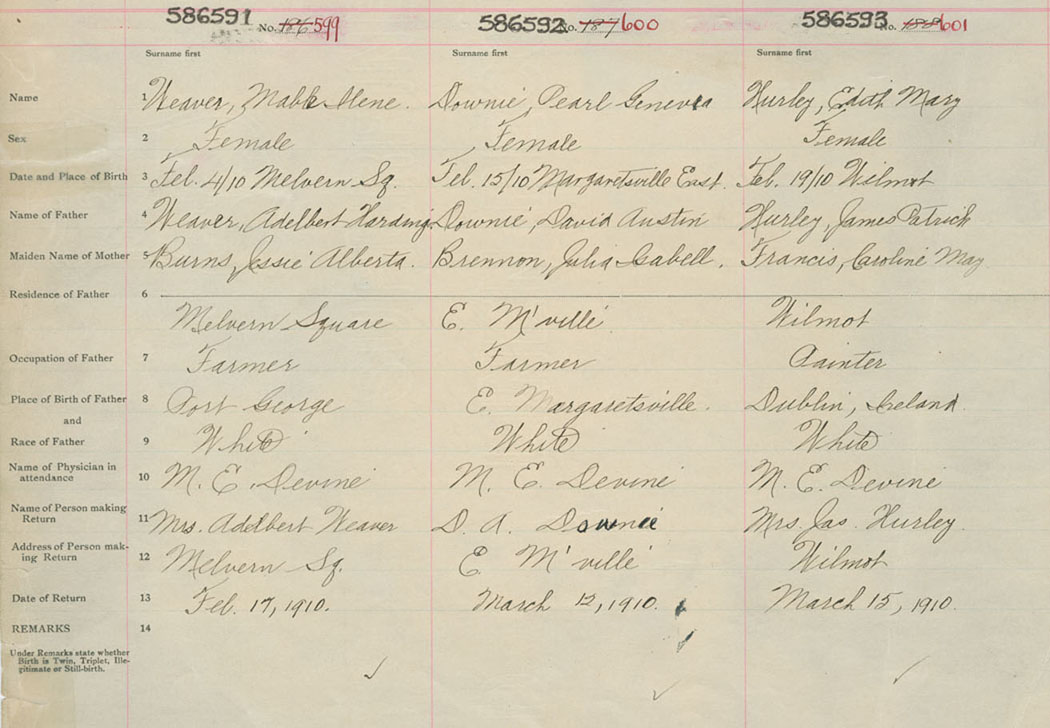 586591 No. 186 599 586592 No. 187 600 586593 No. 188 601
Surname first Surname first Surname first
Name 1 Weaver, Mable Ilene. Downie, Pearl Geneva Hurley, Edith Mary
Sex 2 Female Female Female
Date and Place of Birth 3 Feb. 4/10 Melvern Sq. Feb. 15/10 Margaretsville East. Feb. 19/10 Wilmot
Name of Father 4 Weaver, Adelbert Harding. Downie, David Austin Hurley, James Patrick
Maiden Name of Mother 5 Burns, Jessie Alberta. Brennon, Julia Isabell. Francis, Caroline May.
Residence of Father 6
Melvern Square E. M'ville Wilmot
Occupation of Father 7 Farmer Farmer Painter
Place of Birth of Father 8 Port George E. Margaretsville. Dublin, Ireland.
and
Race of Father 9 White White White
Name of Physician in
attendance 10 M. E. Devine M. E. Devine M. E. Devine
Name of Person making
Return 11 Mrs. Adelbert Weaver D. A. Downie Mrs. Jas. Hurley.
Address of Person mak-
ing Return 12 Melvern Sq. E M'ville Wilmot
Date of Return 13 Feb. 17, 1910. March 12, 1910. March 15, 1910.
REMARKS 14
Under Remarks state whether
Birth is Twin, Triplet, Ille-
gitimate or Still-birth.